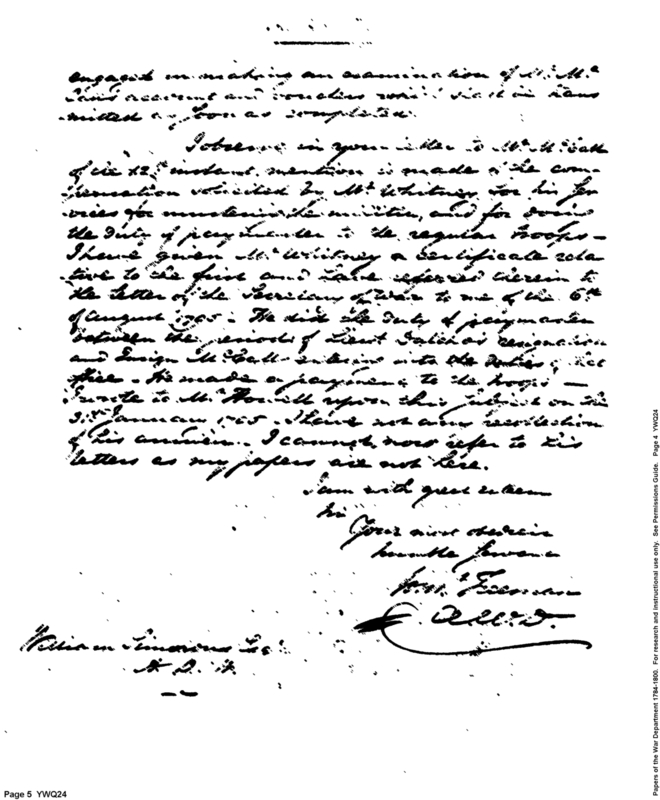 engaged in making an examination of Mr. Mc
account and vouchers which shall be trans
mitted as soon as completed.
I observe in your letter to Mr. McCall
of the 12th instant, mention is made of the com-
pensation solicited by Mr. Whitney for his ser
vices for mustering the militia, and for doing
the duty of paymaster to the regular troops -
I have given Mr. Whitney a certificate rela
tive to the first and have referred therein to
the letter of the Secretary of War to me of the 6th
of August 1795 - He did the duty of paymaster
between the periods of Lieut resignation
and Ensign McCall entering into the duties of that
office - He made a payment to the troops -
I wrote to Mr. Howell upon this subject on the
January 1795 - I have not any recollection
of his answer - I cannot now refer to his
letters as my papers are not here.
I am with great esteem
Sir
Your most obedient
humble Servant
Freeman
A.W.D.
William Simmons Esqr
A. D. W.
Page 5 YWQ24
Papers of the War Department 1784-1800. For research and instructional use only. See Permissions Guide. Page 4 YWQ24